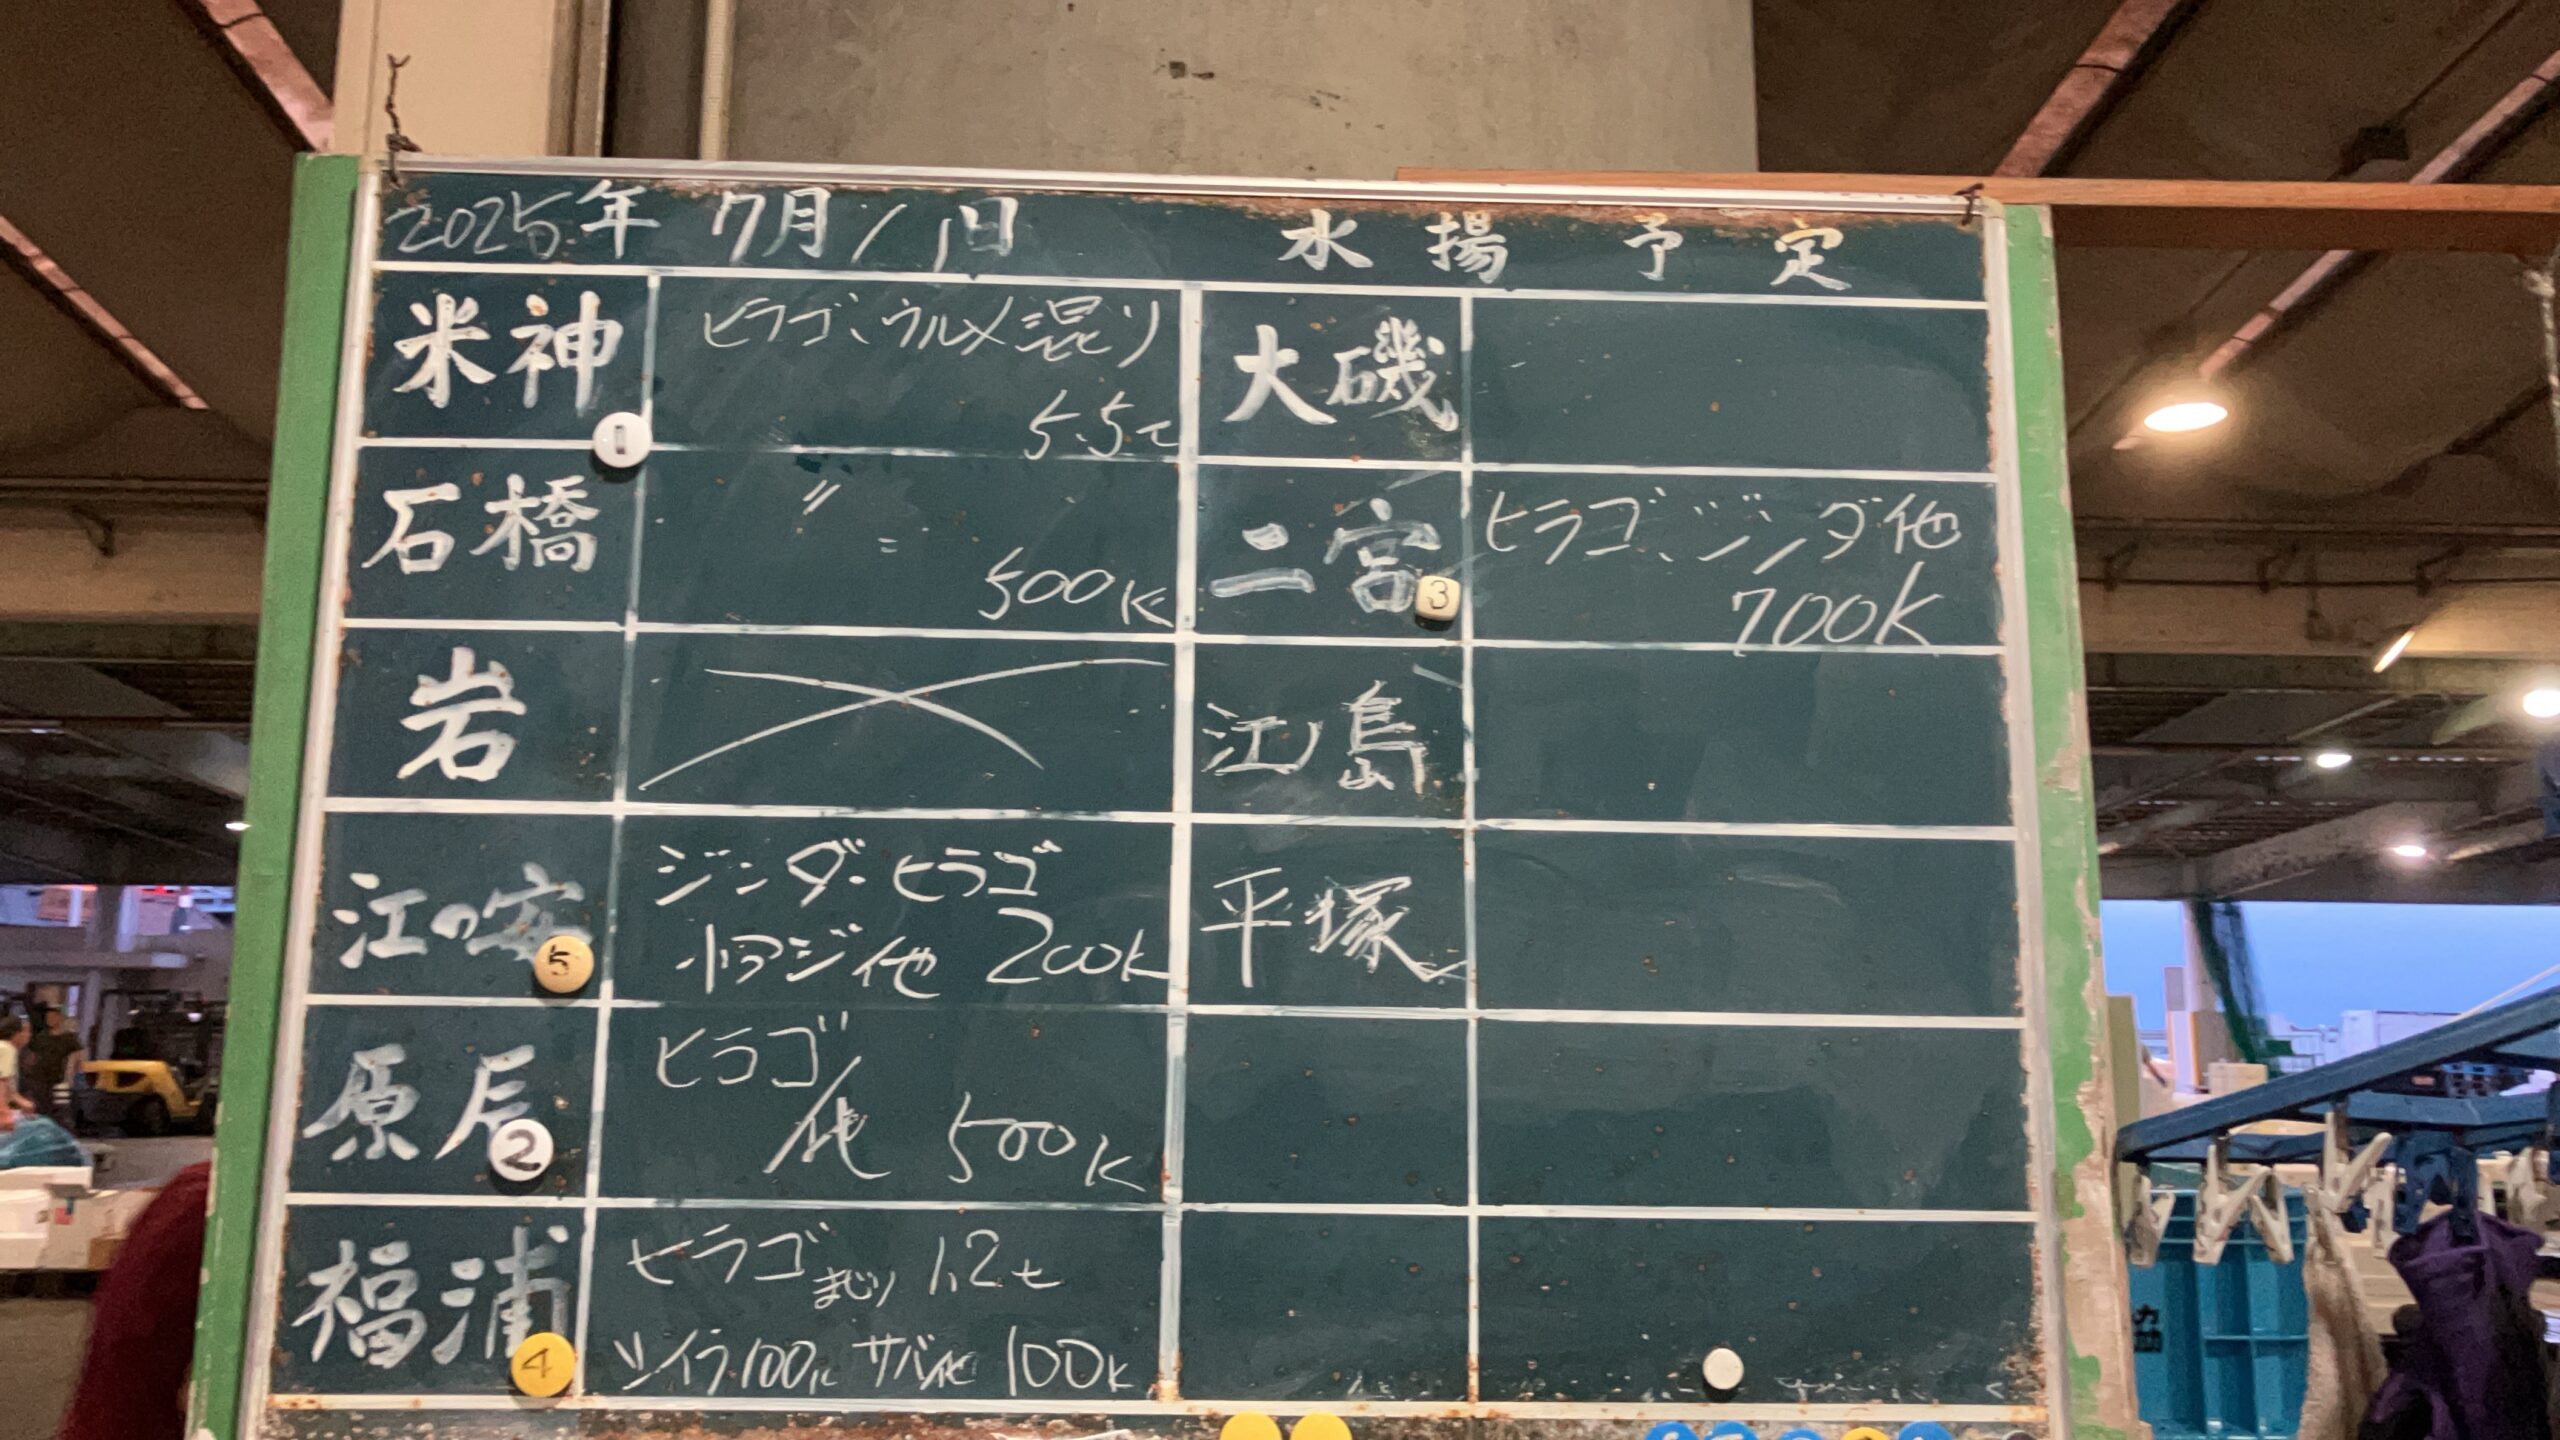 2025年 7月11日 水揚予定
米神 ヒラゴ、ウルメ混り
5.5t
①
石橋 〃
500K
岩 ×
江の安 ジンダ・ヒラゴ
小アジ他 200K
5
原辰 ヒラゴ
他 500K
2
福浦 ヒラゴまじり 1.2t
ツイラ100K サバ他 100K
4
大磯
二宮 ヒラゴ、ジンダ他
700K
3
江ノ島
平塚